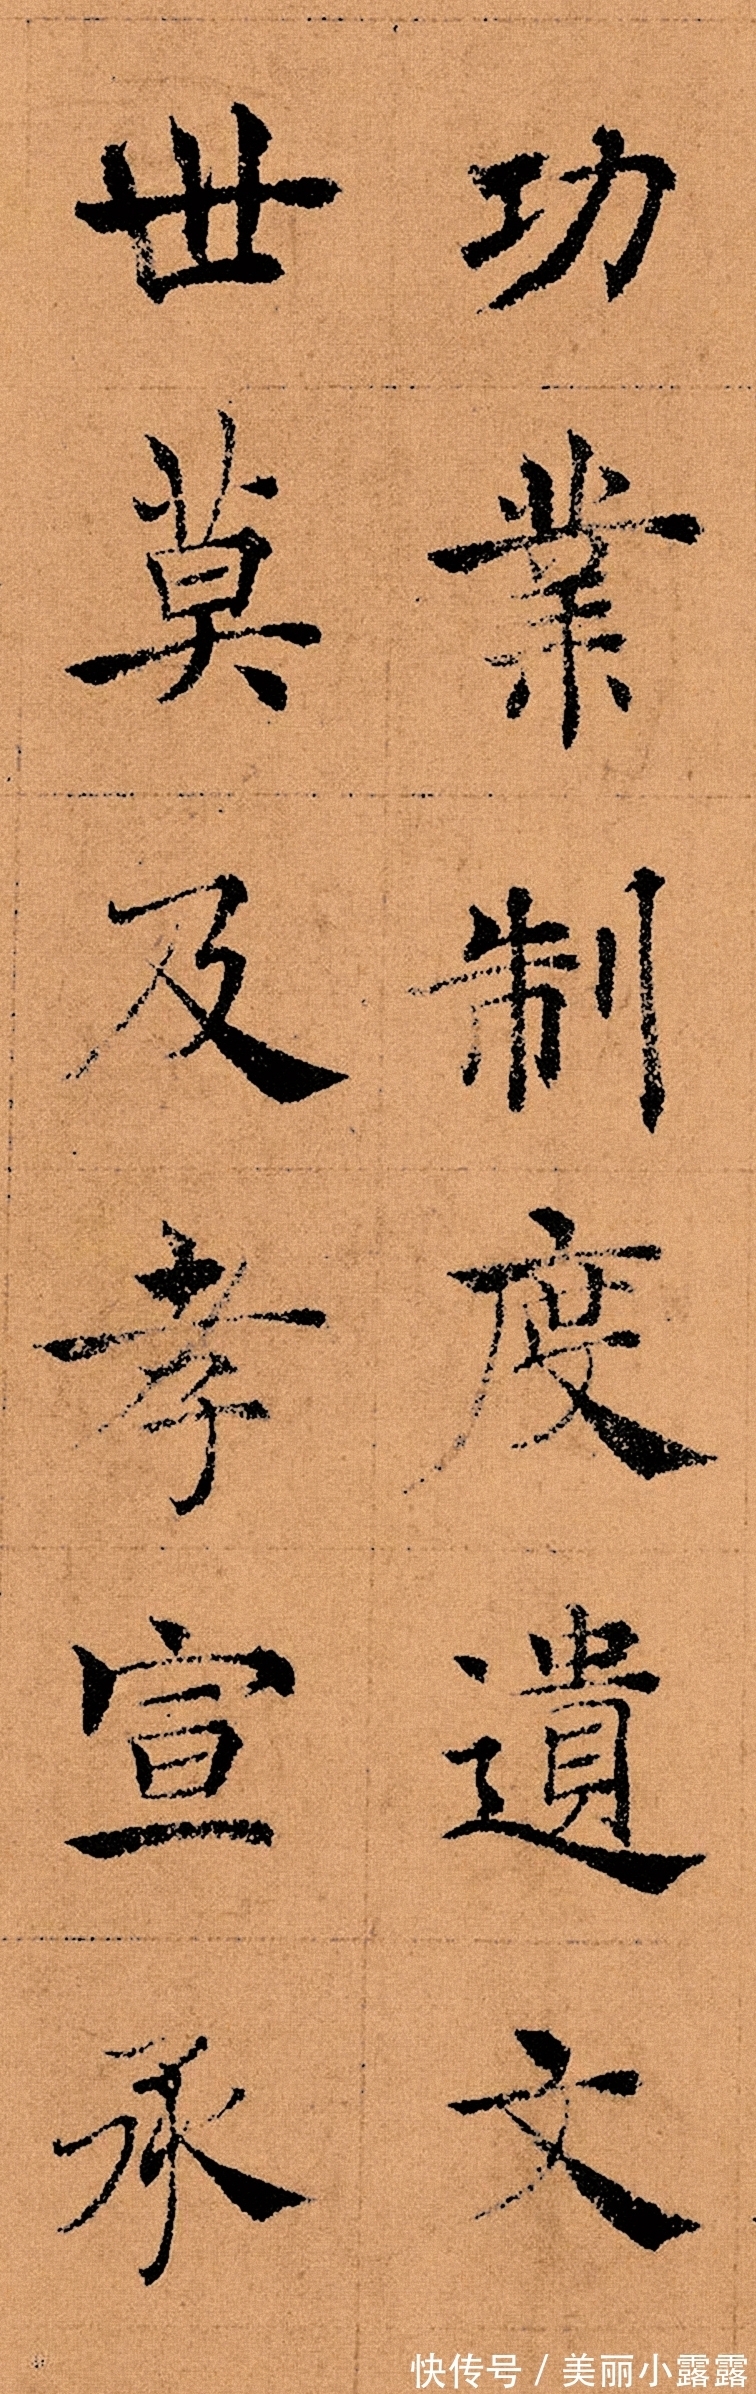 功業制度遺文
世莫及孝宣承
快传号/美丽小露露